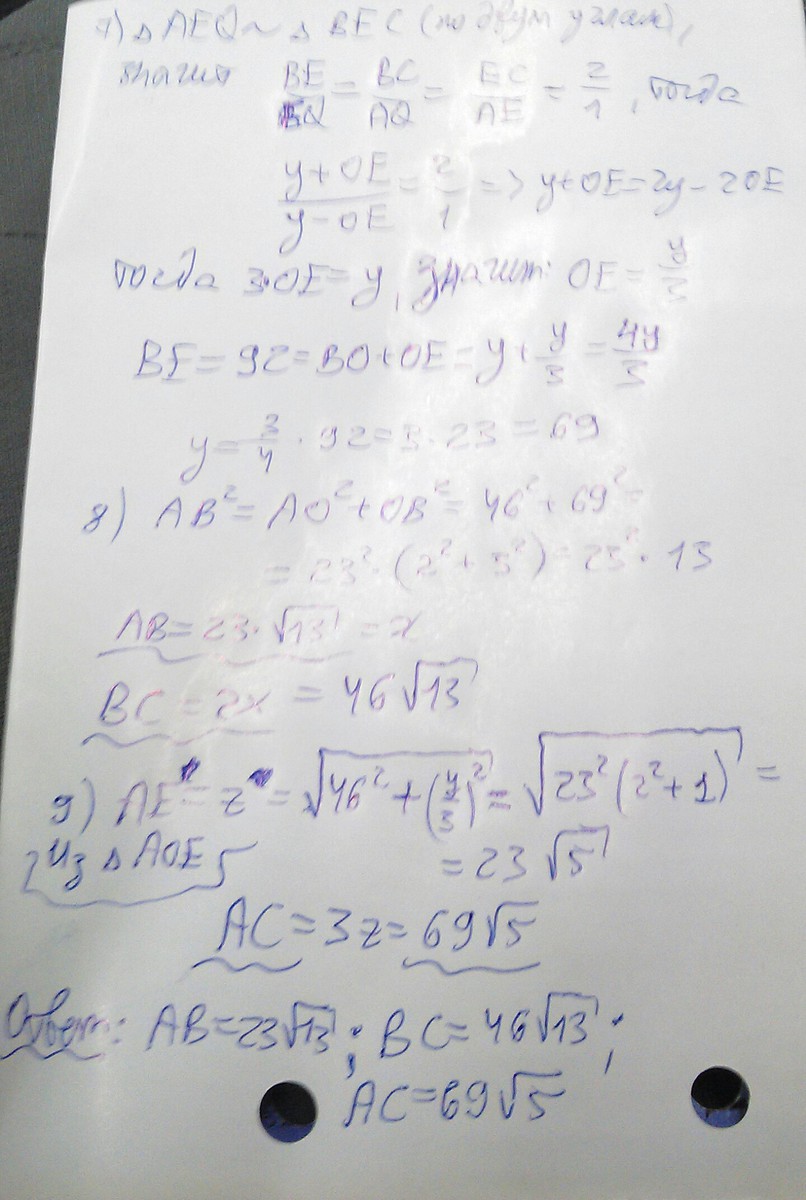 7) △AEQ ~ △BEC (по двум углам),
значит BE/EQ = BC/AQ = EC/AE = 2/1, тогда
(y+OE)/(y-OE) = 2/1 => y+OE=2y-2OE
тогда 3·OE=y, значит: OE = y/3
BE=92=BO+OE=y+y/3=4y/3
y=3/4·92=3·23=69
8) AB²=AO²+OB²=46²+69²=
=23²·(2²+3²)=23²·13
AB=23·√13=x
BC=2x=46√13
9) AE=z=√(46²+(y/3)²)=√(23²(2²+1))=
[из △AOE] =23√5
AC=3z=69√5
Ответ: AB=23√13; BC=46√13;
AC=69√5